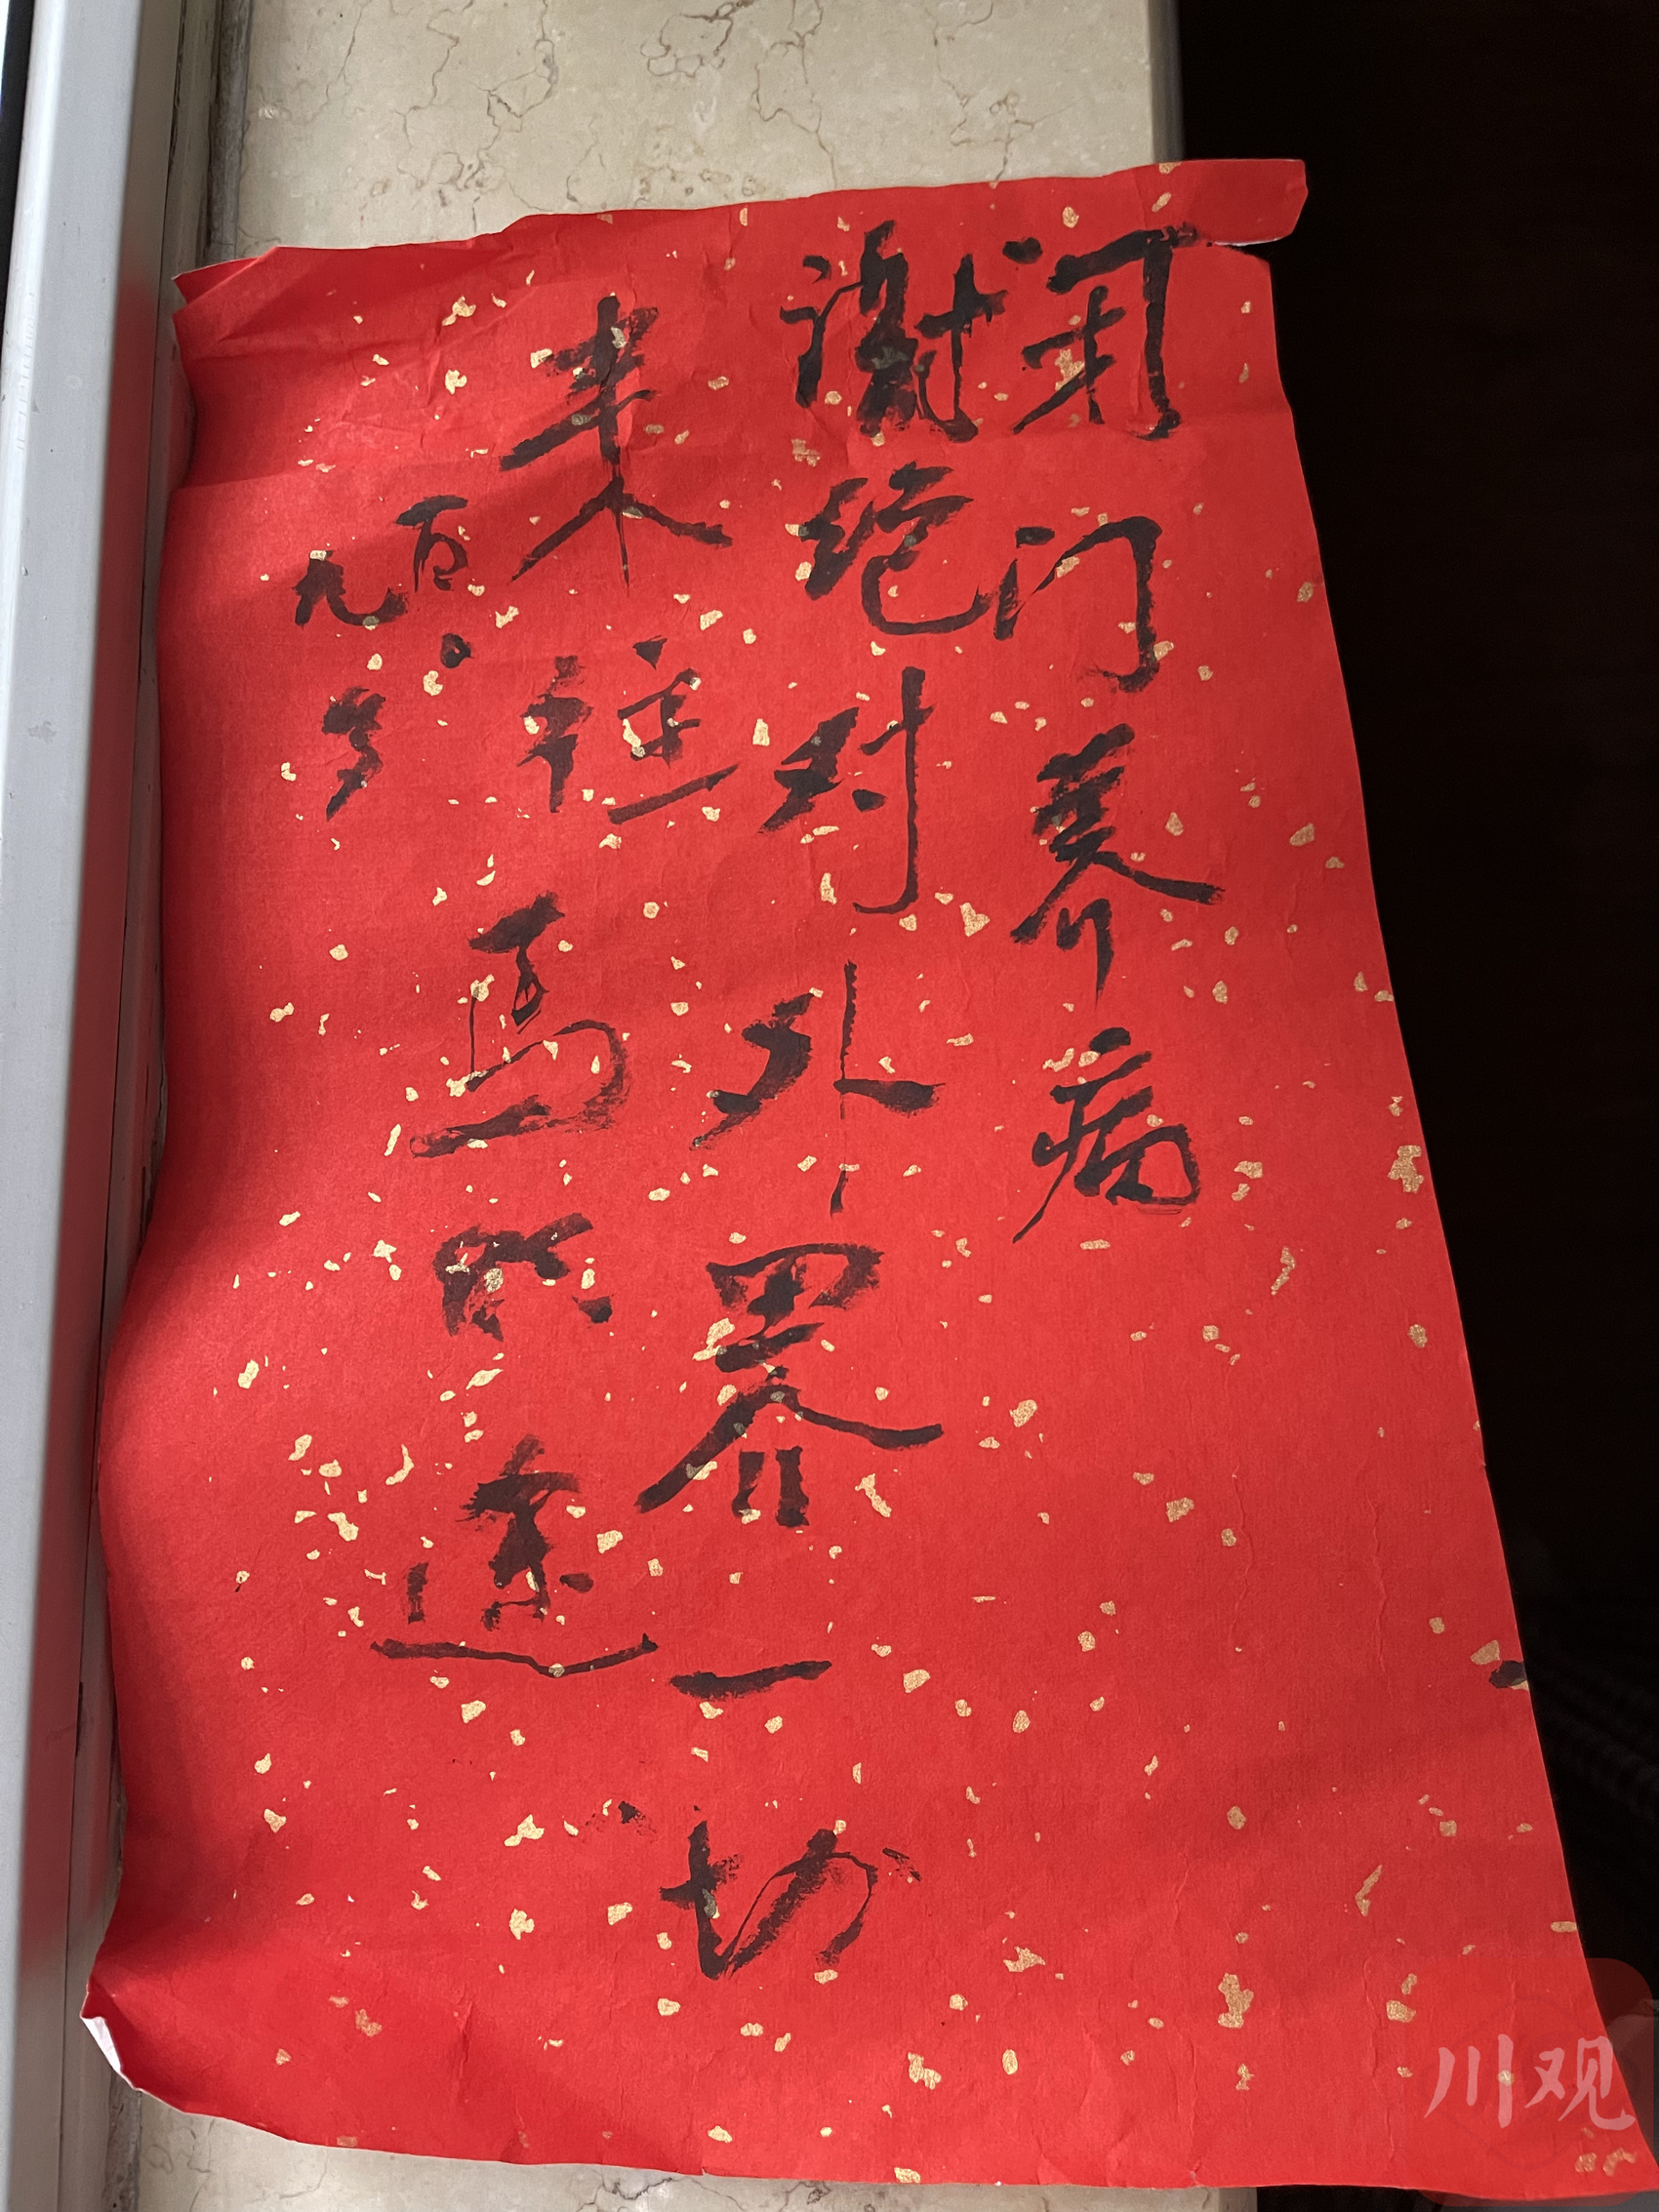 闭门养病
谢绝对外界一切
来往 马识途
百〇九岁
川观